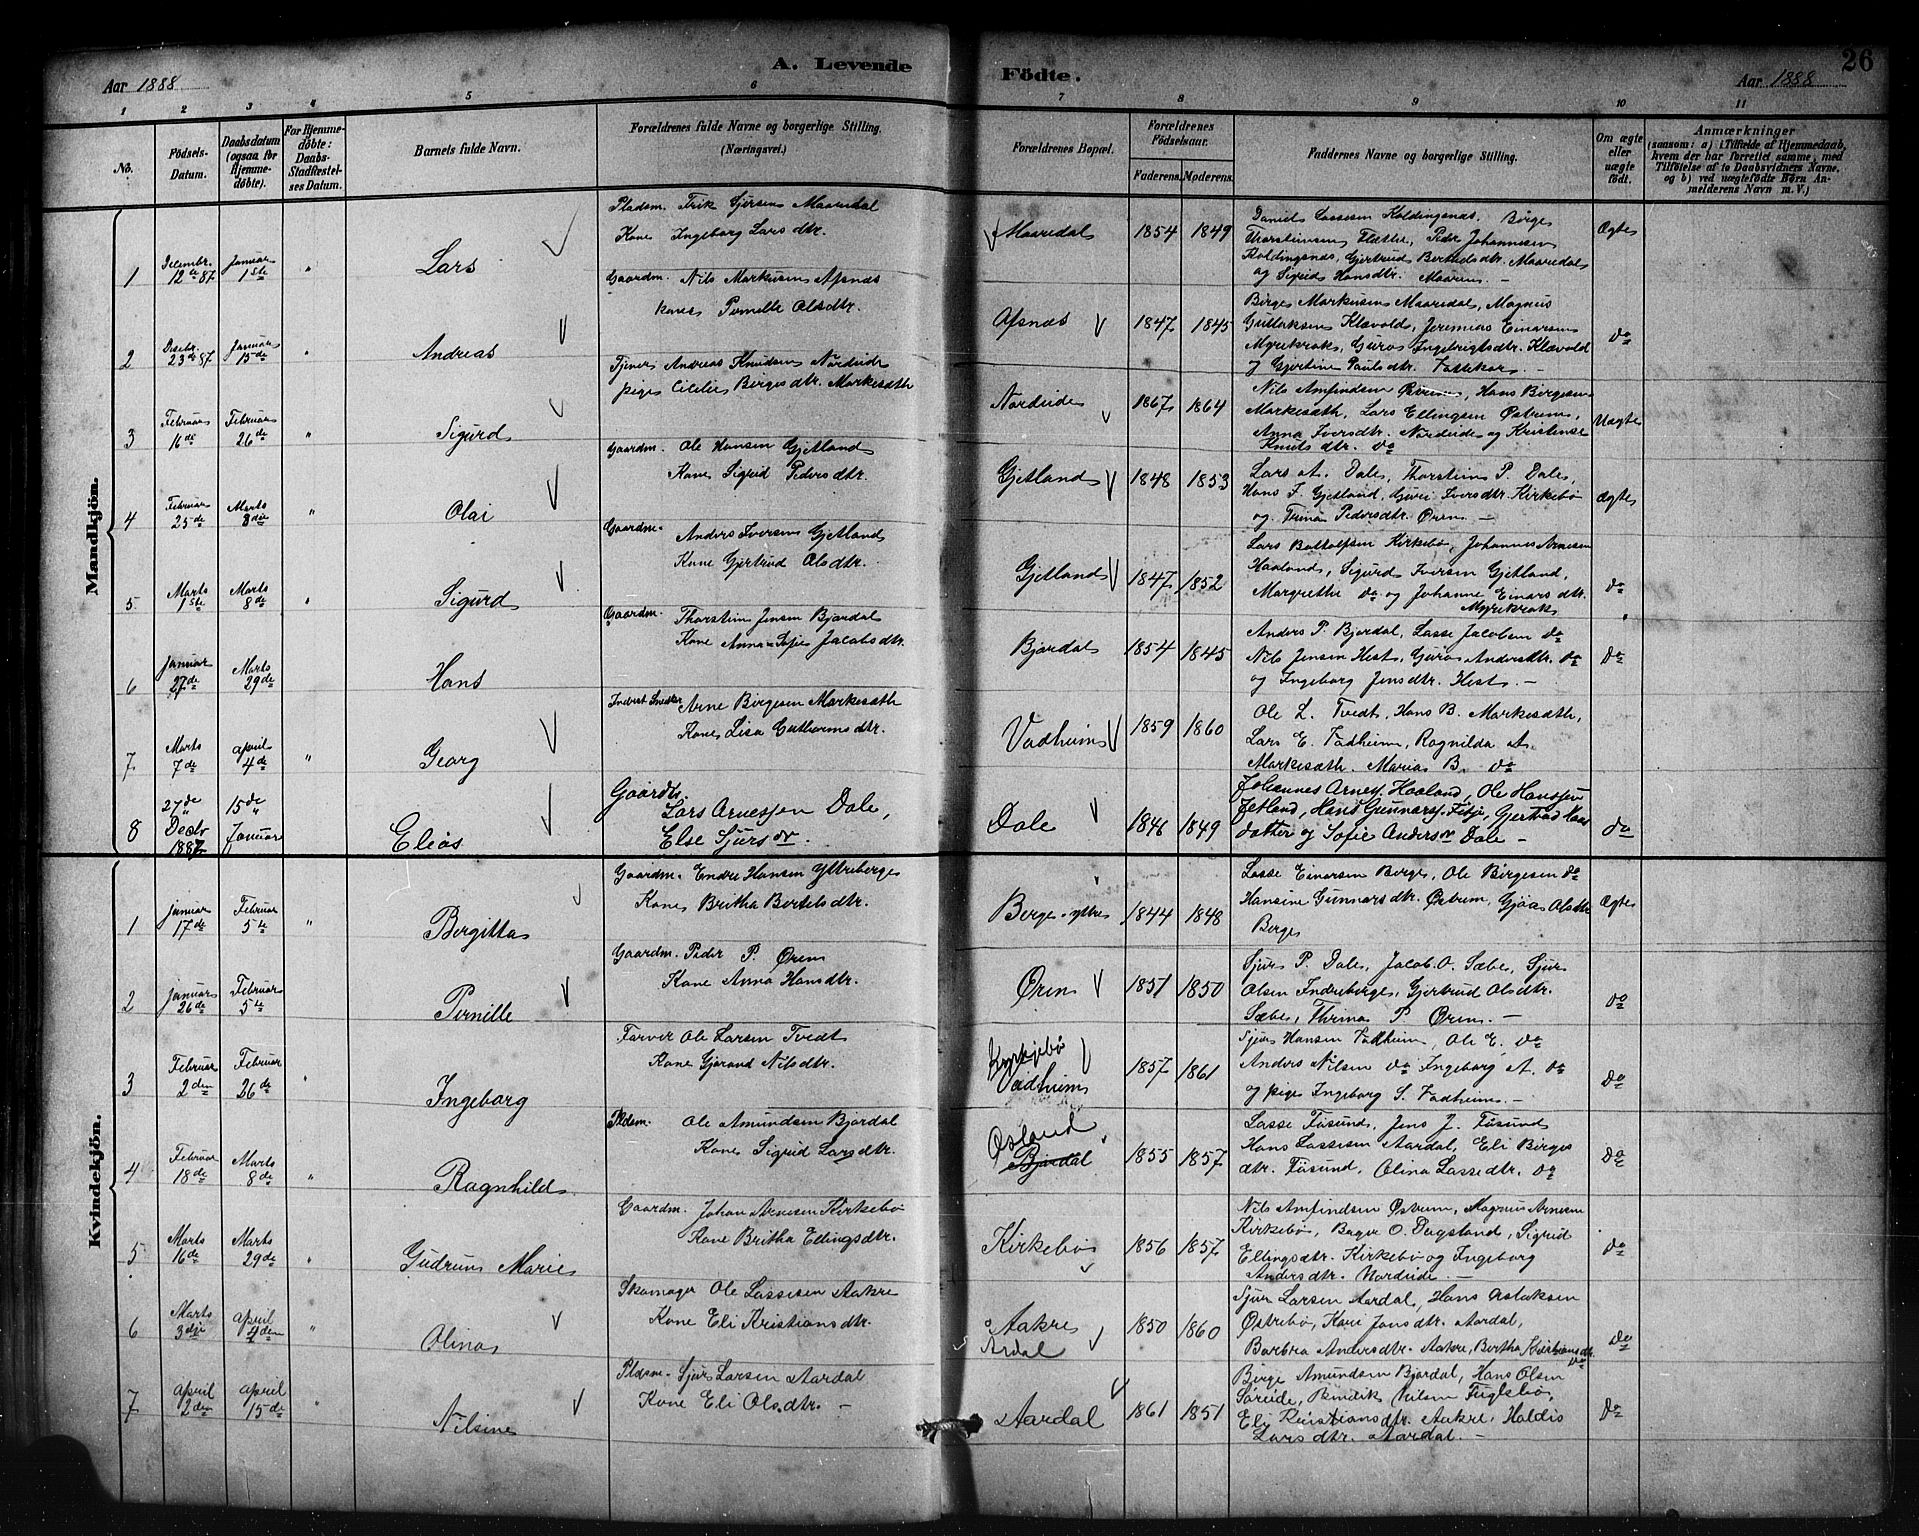 A. Levende
Födte.
26
Aar 1888
Aar 1888
1 2 3 4 5 6 7 8 9 10 11
No.
Födsels-
Datum.
Daabsdatum
(ogsaa for
Hjemme-
døbte).
For Hjemme-
døbte:
Daabs-
Stadfæstel-
ses Datum.
Barnets fulde Navn.
Forældrenes fulde Navne og borgerlige Stilling.
(Næringsvei.)
Forældrenes Bopæl.
Forældrenes
Födselsaar.
Faderens.
Moderens.
Faddernes Navne og borgerlige Stilling.
Om ægte
eller
uægte
födt.
Anmærkninger
(saasom: a) i Tilfælde af Hjemmedaab,
hvem der har forrettet samme, med
Tilföielse af to Daabsvidners Navne,
og b) ved uægtefödte Börn An-
melderens Navn m. V.)
Mandkjön.
1
Decembr.
12te 87
Januar
1ste
"
Lars
Pladsm. Erik Gjørsen Maaredal
Kone Ingeborg Larsdtr.
Maaredal
1854
1849
Daniel Lassesen Koldingsnæs, Børge
Thorsteinsen Flætte, Peder Johannesen
Koldingsnæs, Gjertrud Bertelsdtr. Maaredal
og Sigrid Hansdtr. Maaren. -
Ægte
2
Decbr.
23de 87
Januar
15de
"
Andreas
Gaardm. Nils Markusen Afsnæs
Kones Pernille Olsdtr.
Afsnæs
1847
1845
Børge Markusen Maaredal, Magnus
Gullaksen Klævold, Jeremias Einarsen
Myrekrok, Guro Ingebrigtsdtr. Klævold
og Gjertine Paulsdtr.
do
3
Februar
16de
Februar
26de
"
Sigurd
Tjener Andreas Knudsen Nordeide
pige Cicilie Børgesdtr. Markesæth
Nordeide
1867
1864
Nils Amfindsen Østrem, Hans Børgesen
Markesæth, Lars Ellingsen Østrem,
Anna Iversdtr. Nordeide og Kristense
Knudsdtr. do
Uægte
4
Februar
25de
Marts
8de
"
Olai
Gaardm. Ole Hansen Gjetland
Kone Sigrid Pedersdtr.
Gjetland
1848
1853
Lars A. Dale, Thorstein P. Dale,
Hans I. Gjetland, Guri Iversdtr. Kirkebø
og Trina Pedersdtr. Øren -
Ægte
5
Marts
1ste
Marts
8de
"
Sigurd
Gaardm. Anders Iversen Gjetland
Kone Gjertrud Olsdtr.
Gjetland
1847
1852
Lars Botolfsen Kirkebø, Johannes Arnesen
Haaland, Sigurd Iversen Gjetland,
Margrethe do og Johanne Einarsdtr.
Myrekrok
do
6
Januar
27de
Marts
29de
Hans
Gaardm. Thorstein Jensen Bjordal
Kone Anna-Sofie Jacobsdtr.
Bjordal
1854
1845
Anders P. Bjordal, Lasse Jacobsen do
Nils Jensen Hest, Guro Andersdtr. do
og Ingeborg Jensdtr. Hest. -
do
7
Marts
7de
April
4de
"
Georg
Inderst Snedker Arne Børgesen Markesæth
Kone Lisa Guthormsdtr.
Vadheim
1859
1860
Ole L. Tvedt, Hans B. Markesæth,
Lars E. Vadheim, Ragnilda A.
Markesæth. Maria B. do
8
27de
Decbr
1887
15de
Januar
Elias
Gaardbr.
Lars Arnessen Dale,
Else Sjursdr. -
Dale
1846
1849
Johannes Arness. Haaland, Ole Hanssen
Jetland, Hans Gunnarss. Fitje, Gjertrud
datter og Sofie Andersdr Dale -
do
Kvindekjön.
1
Januar
17de
Februar
5te
"
Bergitta
Gaardm. Endre Hansen Ytreberge
Kone Britha Bertelsdtr.
Berge-ytre
1844
1848
Lasse Einarsen Berge, Ole Børgesen do
Hansine Gunnarsdtr. Østrem, Gjøa Olsdtr
Berge
Ægte
2
Januar
26de
Februar
5te
Pernille
Gaardm. Peder P. Øren
Kone Anna Hansdtr.
Øren
1851
1850
Sjur P. Dale, Jacob O. Sæbø, Sjur
Olsen Indreberge, Gjertrud Olsdtr.
Sæbø, Thrina P. Øren. -
do
3
Februar
2den
Februar
26de
Ingeborg
Farver Ole Larsen Tvedt
Kone Gjørand Nilsdtr.
Kyrkjebø
Vadheim
1857
1861
Sjur Hansen Vadheim, Ole E. do
Anders Nilsen do Ingeborg A. do
og pige Ingeborg S. Vadheim. -
do
4
Februar
18de
Marts
8de
"
Ragnhild
Pldsm. Ole Amundsen Bjordal
Kone Sigrid Larsdtr.
Osland
Bjordal
1855
1857
LasseFøsund, Jens J. Føsund
Hans Lassesen Aardal, Eli Børges
dtr. Føsund, Olina Lassedtr. do
do
5
Marts
16de
Marts
29de
"
Gudrun Marie
Gaardm. Johan Arnesen Kirkebø
Kone Britha Ellingsdtr.
Kirkebø
1856
1857
Nils Amfindsen Østrem, Magnus Arnesen
Kirkebø, O. Dugstand, Sigrid
Ellingsdtr. Kirkebø og Ingeborg
Andersdtr. Nordeide -
do
6
Marts
3die
April
4den
"
Olina
Skomager Ole Lassesen Aakre
Kone Eli Kristiansdtr.
Aakre
Ardal
1850
1860
Sjur Larsen Aardal, Hans Aslaksen
Østrebø, Kari Jonsdtr. Aardal,
Barbra Andersdtr. Aakre, Bertha Kristiansdtr.
do
do
7
April
2den
April
15de
"
Nilsine
Pldsm. Sjur Larsen Aardal
Kone Eli Olsdtr. -
Aardal
1861
1851
Børge Amundsen Bjordal, Hans Olsen
Søreide, Bendik Nilsen Fuglebø,
Eli Kristiansdtr. Aakre, Haldis
Larsdtr. Aardal. -
do